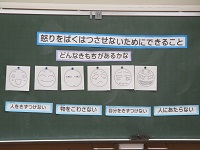 怒りをばくはつさせないためにできること
どんなきもちがあるかな
人をきずつけない
物をこわさない
自分をきずつけない
人にあたらない